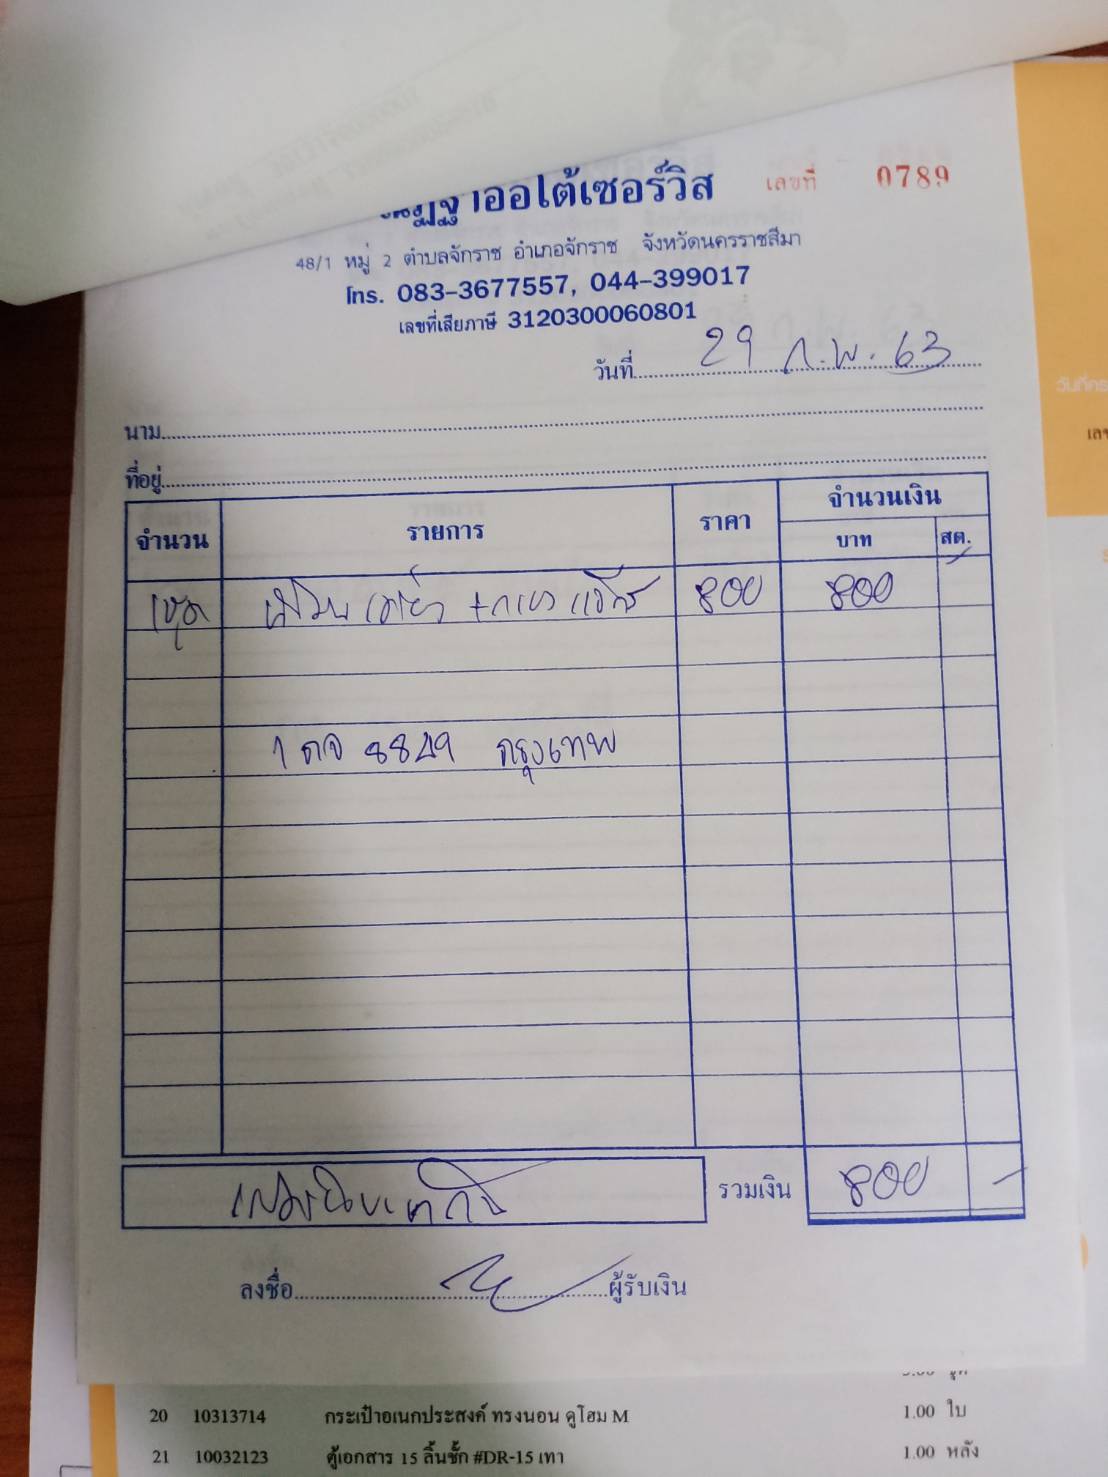 ออโต้เซอร์วิส เลขที่ 0789
48/1 หมู่ 2 ตำบลจักราช อำเภอจักราช จังหวัดนครราชสีมา
โทร. 083-3677557, 044-399017
เลขที่เสียภาษี 3120300060801
วันที่ 29 ก.พ. 63
นาม
ที่อยู่
จำนวน รายการ ราคา จำนวนเงิน
บาท สต.
800 800
กรุงเทพ
รวมเงิน 800 -
ลงชื่อ ผู้รับเงิน
20 10313714 กระเป๋าอเนกประสงค์ ทรงนอน คูโฮม M 1.00 ใบ
21 10032123 ตู้เอกสาร 15 ลิ้นชัก #DR-15 เทา 1.00 หลัง